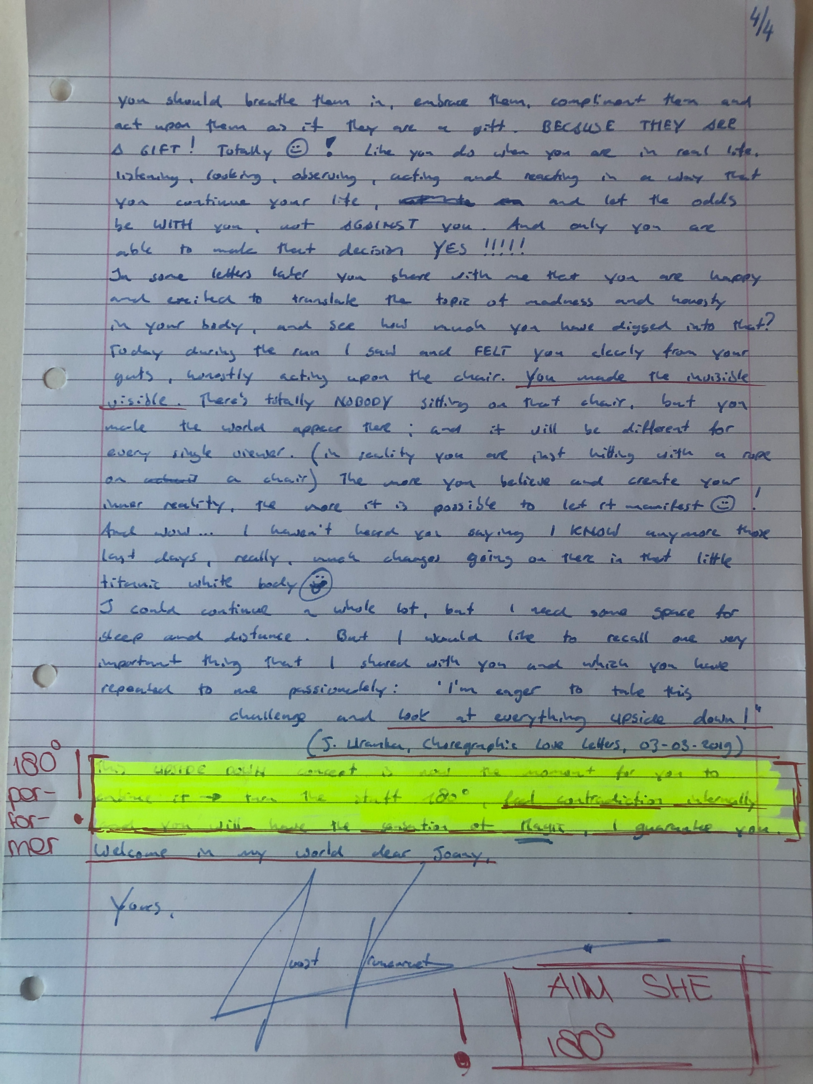 4/4
you should breathe them in, embrace them, compliment them and
act upon them as if they are a gift. BECAUSE THEY ARE
A GIFT! Totally ☺ ! Like you do when you are in real life,
listening, looking, observing, acting and reacting in a way that
you continue your life, and let the odds
be WITH you, not AGAINST you. And only you are
able to make that decision YES !!!!!
In some letters later you share with me that you are happy
and excited to translate the topic of madness and honesty
in your body, and see how much you have digged into that?
Today during the run I saw and FELT you clearly from your
guts, honestly acting upon the chair. You made the invisible
visible. There's totally NOBODY sitting on that chair, but you
make the world appear there; and it will be different for
every single viewer. (in reality you are just hitting with a rope
on a chair) The more you believe and create your
inner reality, the more it is possible to let it manifest ☺ !
And wow... I haven't heard you saying I KNOW anymore those
last days, really, much changes going on there in that little
titanic white body ☺
I could continue a whole lot, but I need some space for
sleep and distance. But I would like to recall one very
important thing that I shared with you and which you have
repeated to me passionately: "I'm eager to take this
challenge and look at everything upside down!"
(J. Uranka, Choreographic Love Letters, 03-03-2019)
180° per-for-mer !
This UPSIDE DOWN concept is now the moment for you to
embrace it → turn the stuff 180°, feel contradiction internally
and you will have the sensation of Magic, I guarantee you.
Welcome in my world dear Joany,
Yours,
Joost
! AIM SHE
180°